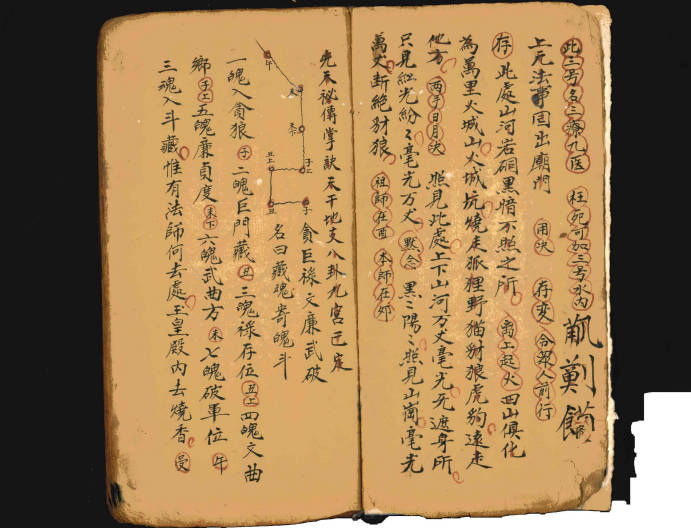 此三号名三療九医 枉死可加三号水內
上元法事回出廟門 用決 存変 合眾人前行
存 此處山河岩硐黑暗不照之所 离上起火 四山俱化
為萬里火城山火城坑燒走狐狸野猫豺狼虎豹遠走
他方 两手日月決 照見此處上下山河万丈毫光无遮身所
只見紅光紛〻毫光万丈 默念 黑〻陽〻照見山崗毫光
萬丈断絕豺狼 祖師在酉 本師在卯
先天祕傳掌訣天干地支八卦九宮已定
午
未
未下
丑上
子上
丑
子
貪巨祿文廉武破
名曰藏魂寄魄斗
一魄入貪狼 子 二魄巨門藏 丑 三魄祿存位 丑上 四魄文曲
鄉 子上 五魄廉貞度 未下 六魄武曲方 未 七魄破軍位 午
三魂入斗藏惟有法師何去處玉皇殿內去燒香 受